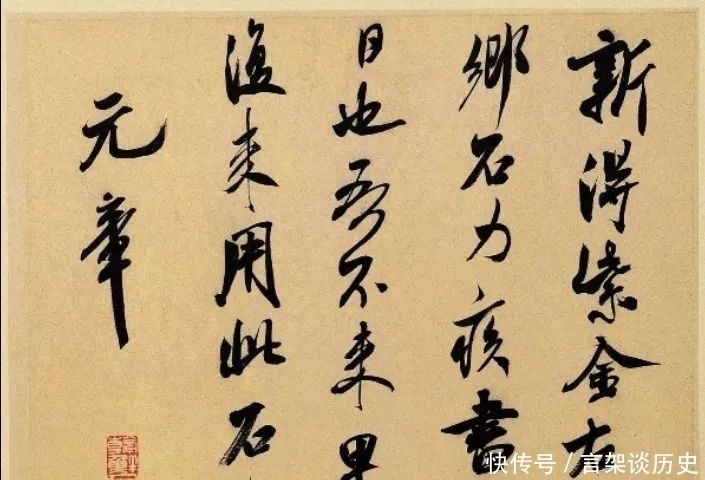 新得紫金右
鄉石力疾書
日也吾不來果
復來用此石
元章
快传号/言架谈历史